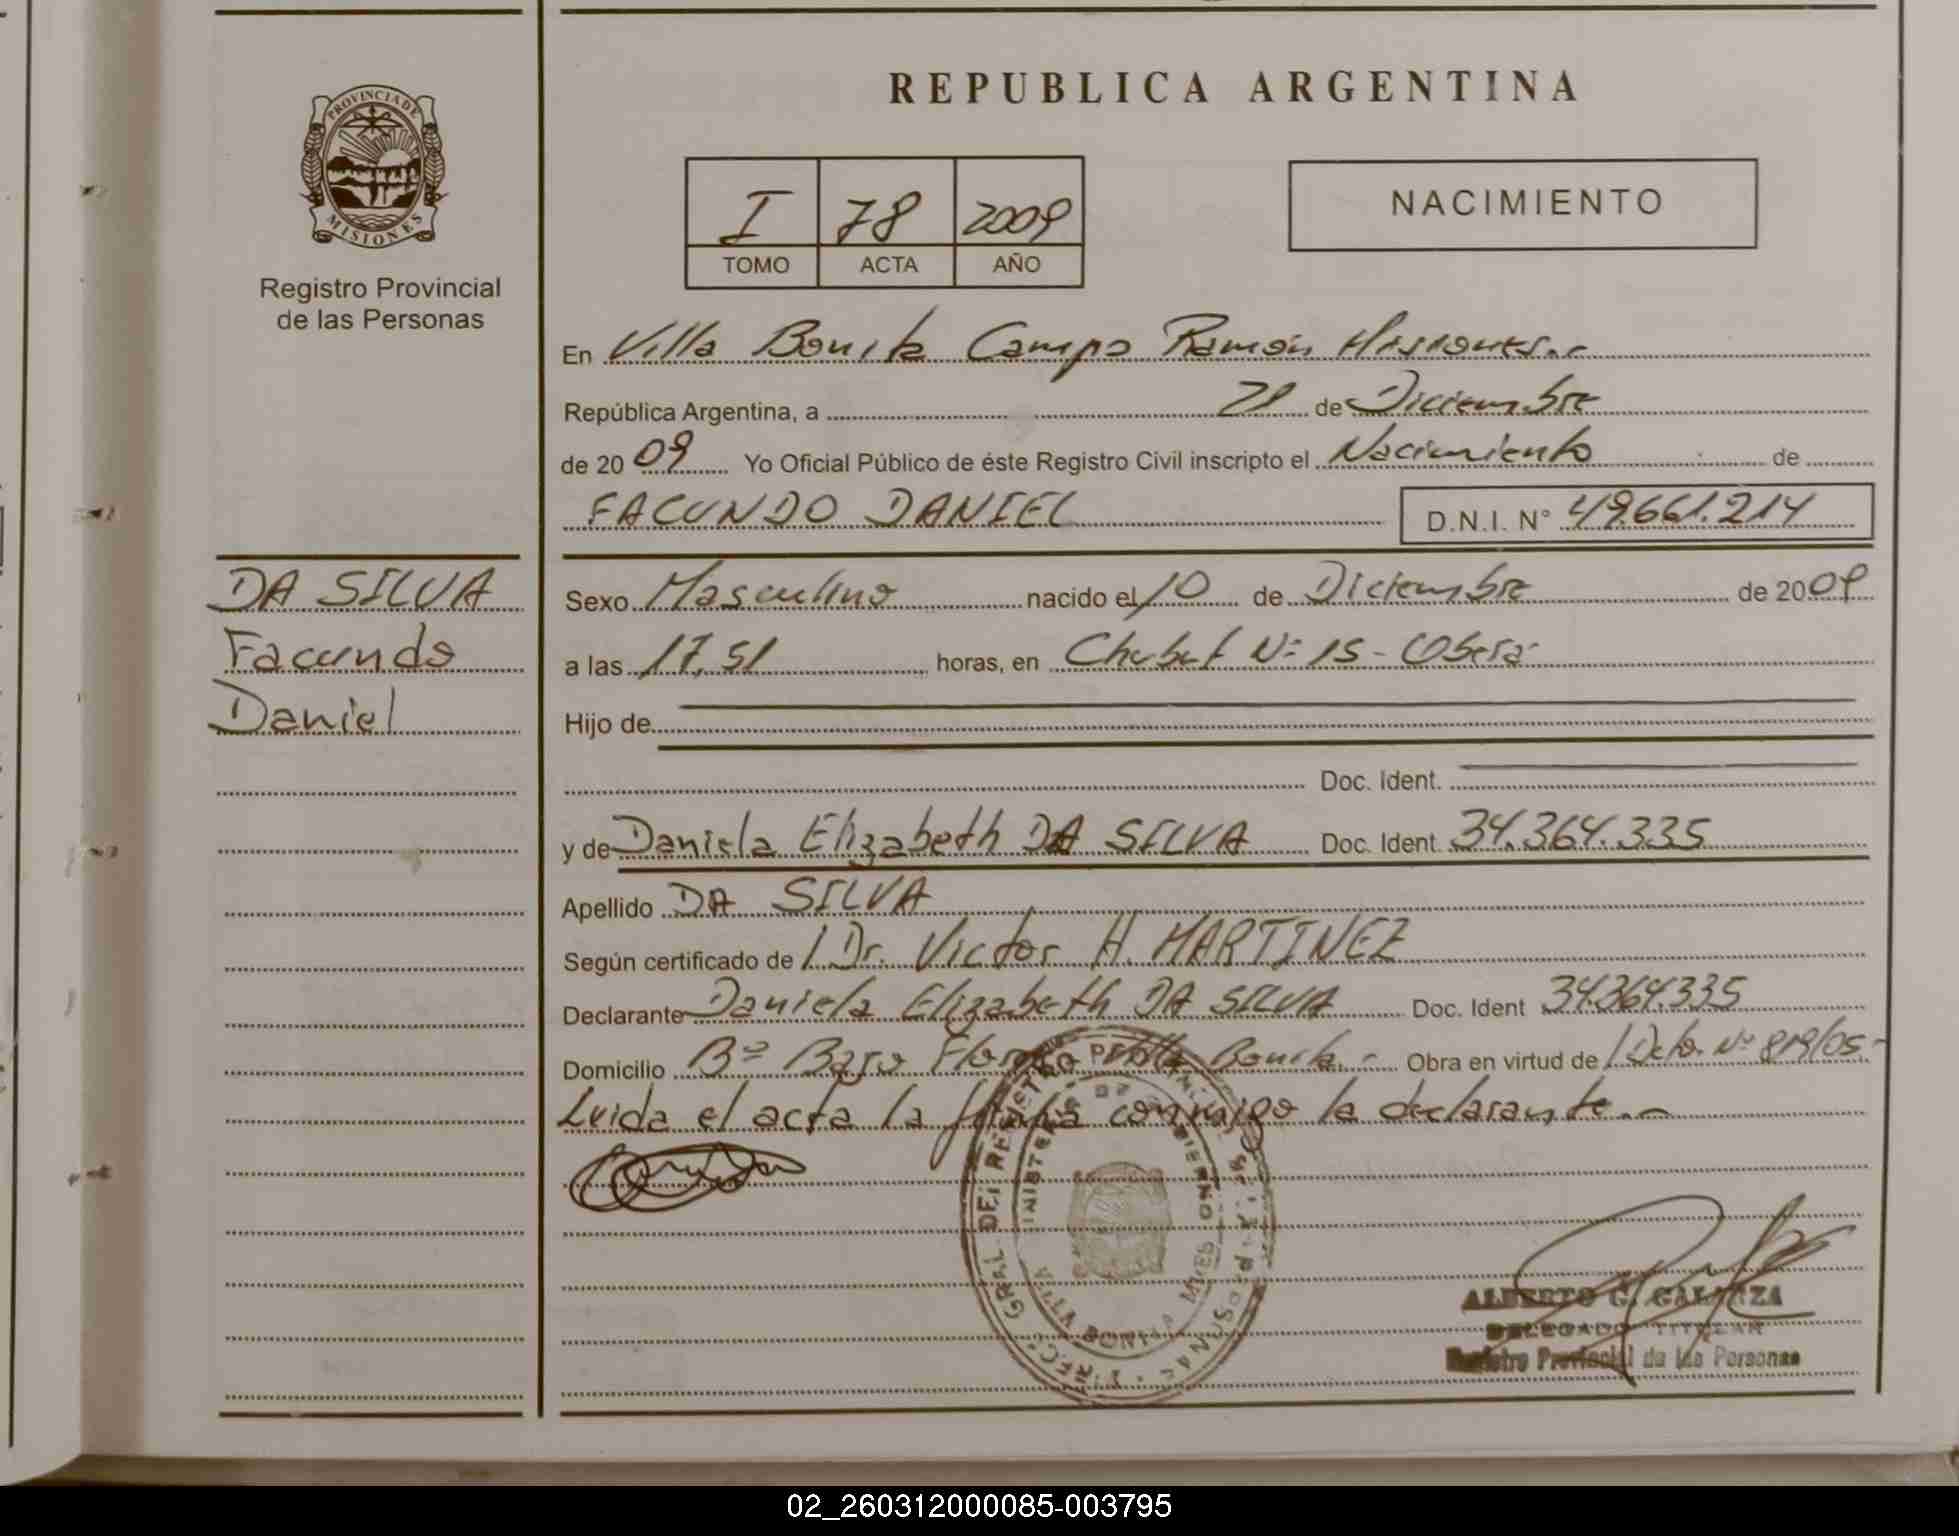 PROVINCIA DE
MISIONES
Registro Provincial
de las Personas
DA SILVA
Facundo
Daniel
REPUBLICA ARGENTINA
I 78 2009
TOMO ACTA AÑO
NACIMIENTO
En Villa Bonita Campo Ramón Misiones.-
República Argentina, a 21 de Diciembre
de 2009 Yo Oficial Público de éste Registro Civil inscripto el Nacimiento de
FACUNDO DANIEL D.N.I. N° 49.661.214
Sexo Masculino nacido el 10 de Diciembre de 2009
a las 17,51 horas, en Chubut N° 15 - Oberá
Hijo de
Doc. Ident.
y de Daniela Elizabeth DA SILVA Doc. Ident. 34.364.335
Apellido DA SILVA
Según certificado de Dr. Victor H. MARTINEZ
Declarante Daniela Elizabeth DA SILVA Doc. Ident 34.364.335
Domicilio B° Bajo Villa Bonita.- Obra en virtud de Dcto. N° 819/05.-
Leida el acta la firma conmigo la declarante.-
ALBERTO G. GALARZA
DELEGADO TITULAR
Registro Provincial de las Personas
02_260312000085-003795